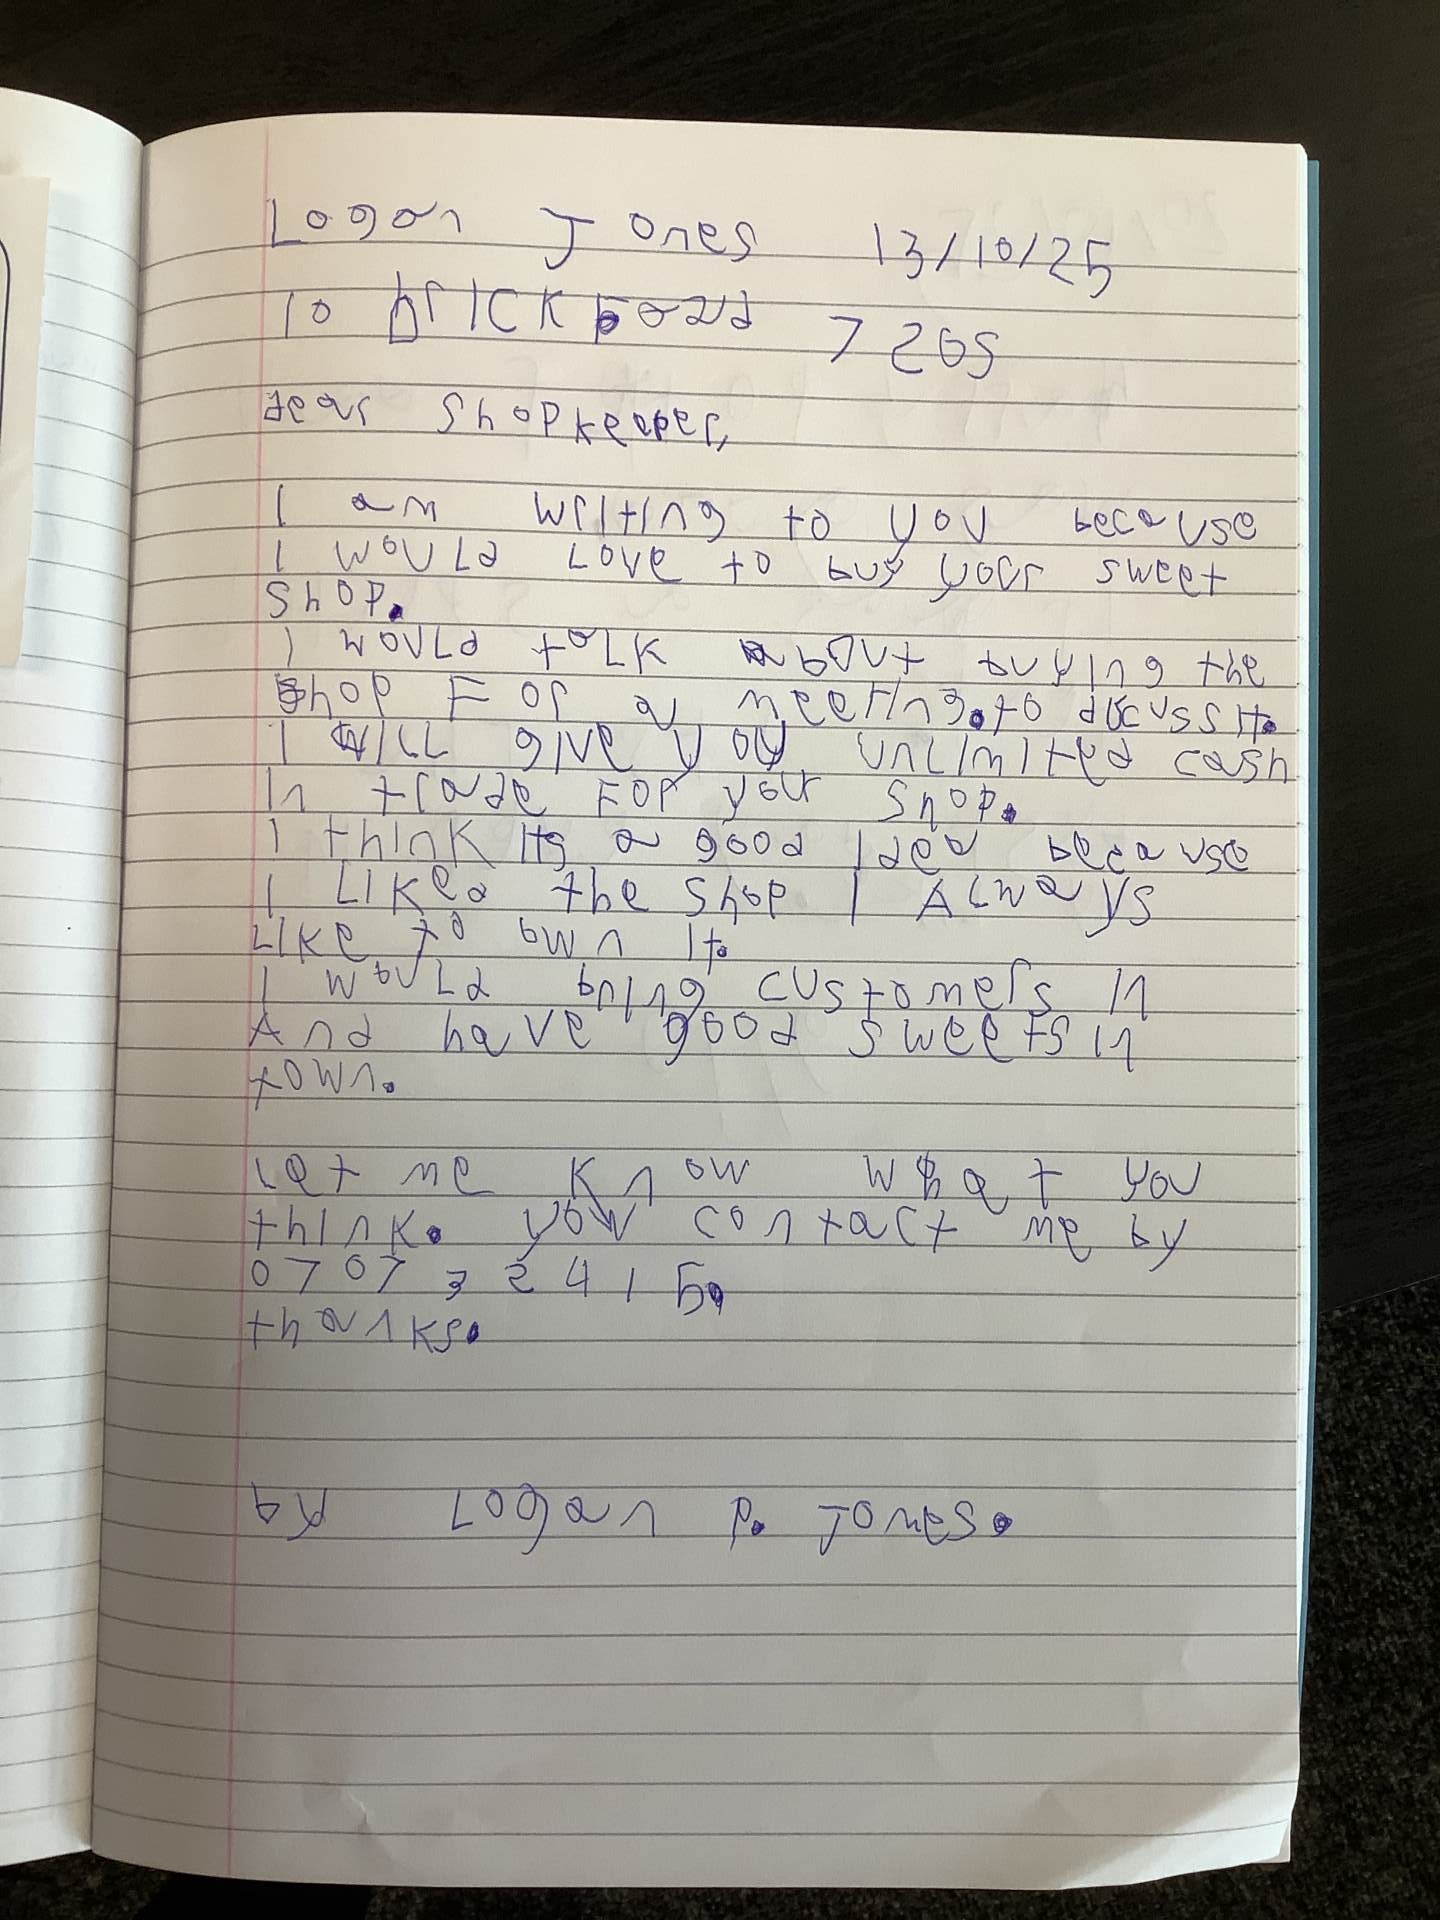 Logan Jones 13/10/25
10 brick road 7205
dear Shopkeeper,
I am writing to you because
I would Love to buy your sweet
Shop.
I would talk about buying the
shop For a meeting. to discuss it.
I will give you unlimited cash
In trade For your Shop.
I think its a good Idea because
I Liked the Shop I ALways
Like to own It.
I would bring customers In
And have good sweets In
town.
Let me know what you
think. you contact me by
070732415.
thanks.
by Logan P. Jones.